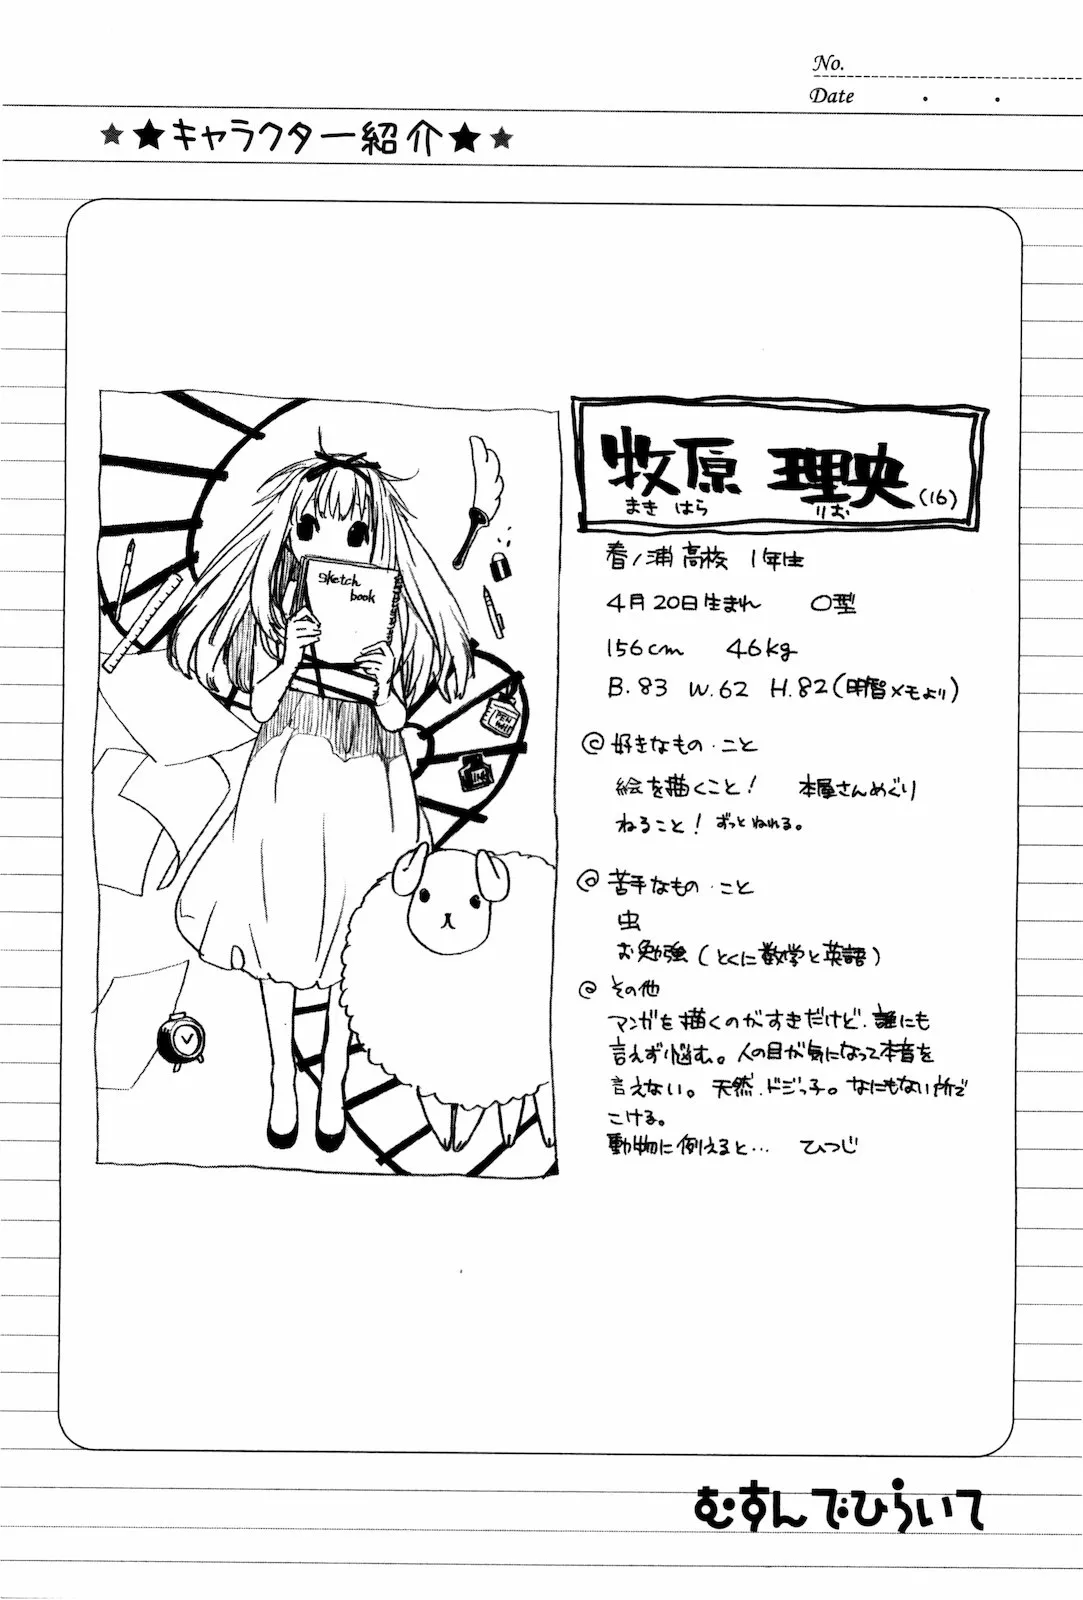 No.
Date . .
★★キャラクター紹介★★
牧原 理央(16)
まき はら りお
Sketch
book
PEN
INK
春ノ浦高校 1年生
4月20日生まれ O型
156cm 46kg
B.83 W.62 H.82(明智メモより)
好きなもの・こと
絵を描くこと! 本屋さんめぐり
ねること! ずっとねれる。
苦手なもの・こと
虫
お勉強(とくに数学と英語)
その他
マンガを描くのがすきだけど、誰にも
言えず悩む。人の目が気になって本音を
言えない。天然、ドジっ子。なにもない所で
こける。
動物に例えると… ひつじ
むすんでひらいて